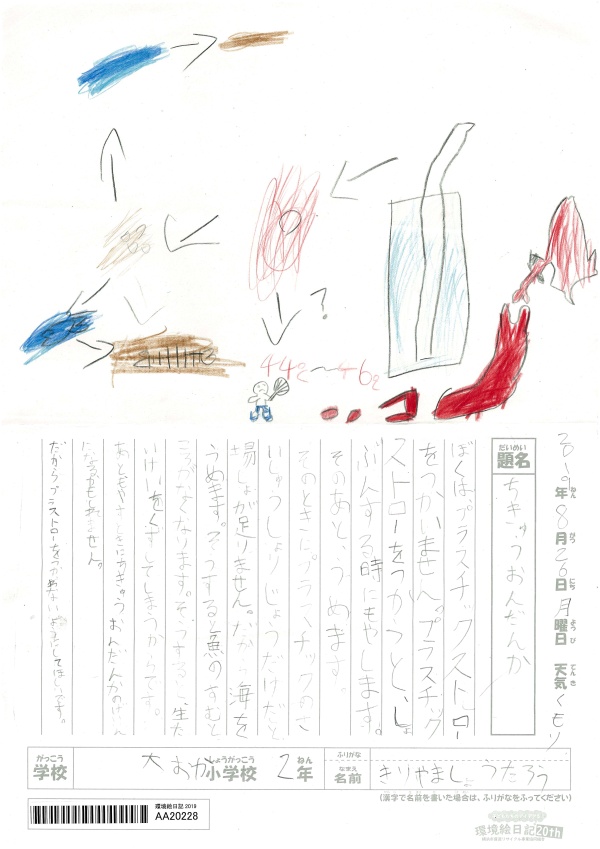 44℃〜46℃
?
2019年8月26日月曜日 天気くもり
ねん がつ にち よう び てんき
だいめい
題名
ちきゅうおんだんか
ぼくは、プラスチックストロー
をつかいません。プラスチック
ストローをつかうと、しょ
ぶんする時にもやします。
そのあと、うめます。
そのときに、プラスチックのさ
いしゅうしょりじょうだけだと
場しょが足りません。だから海を
うめます。そうすると魚のすむと
ころがなくなります。そうすると、生た
いけいをくずしてしまうからです。
あともやすときにちきゅうおんだんかのげいいん
になるかもしれません。
だからプラストローをつかわないようにしてほしいです。
がっこう
学校
大おか小学校 2年
しょうがっこう ねん
ふりがな
なまえ
名前
きりやましょうたろう
(漢字で名前を書いた場合は、ふりがなをふってください)
環境絵日記2018
AA20228
環境絵日記20th